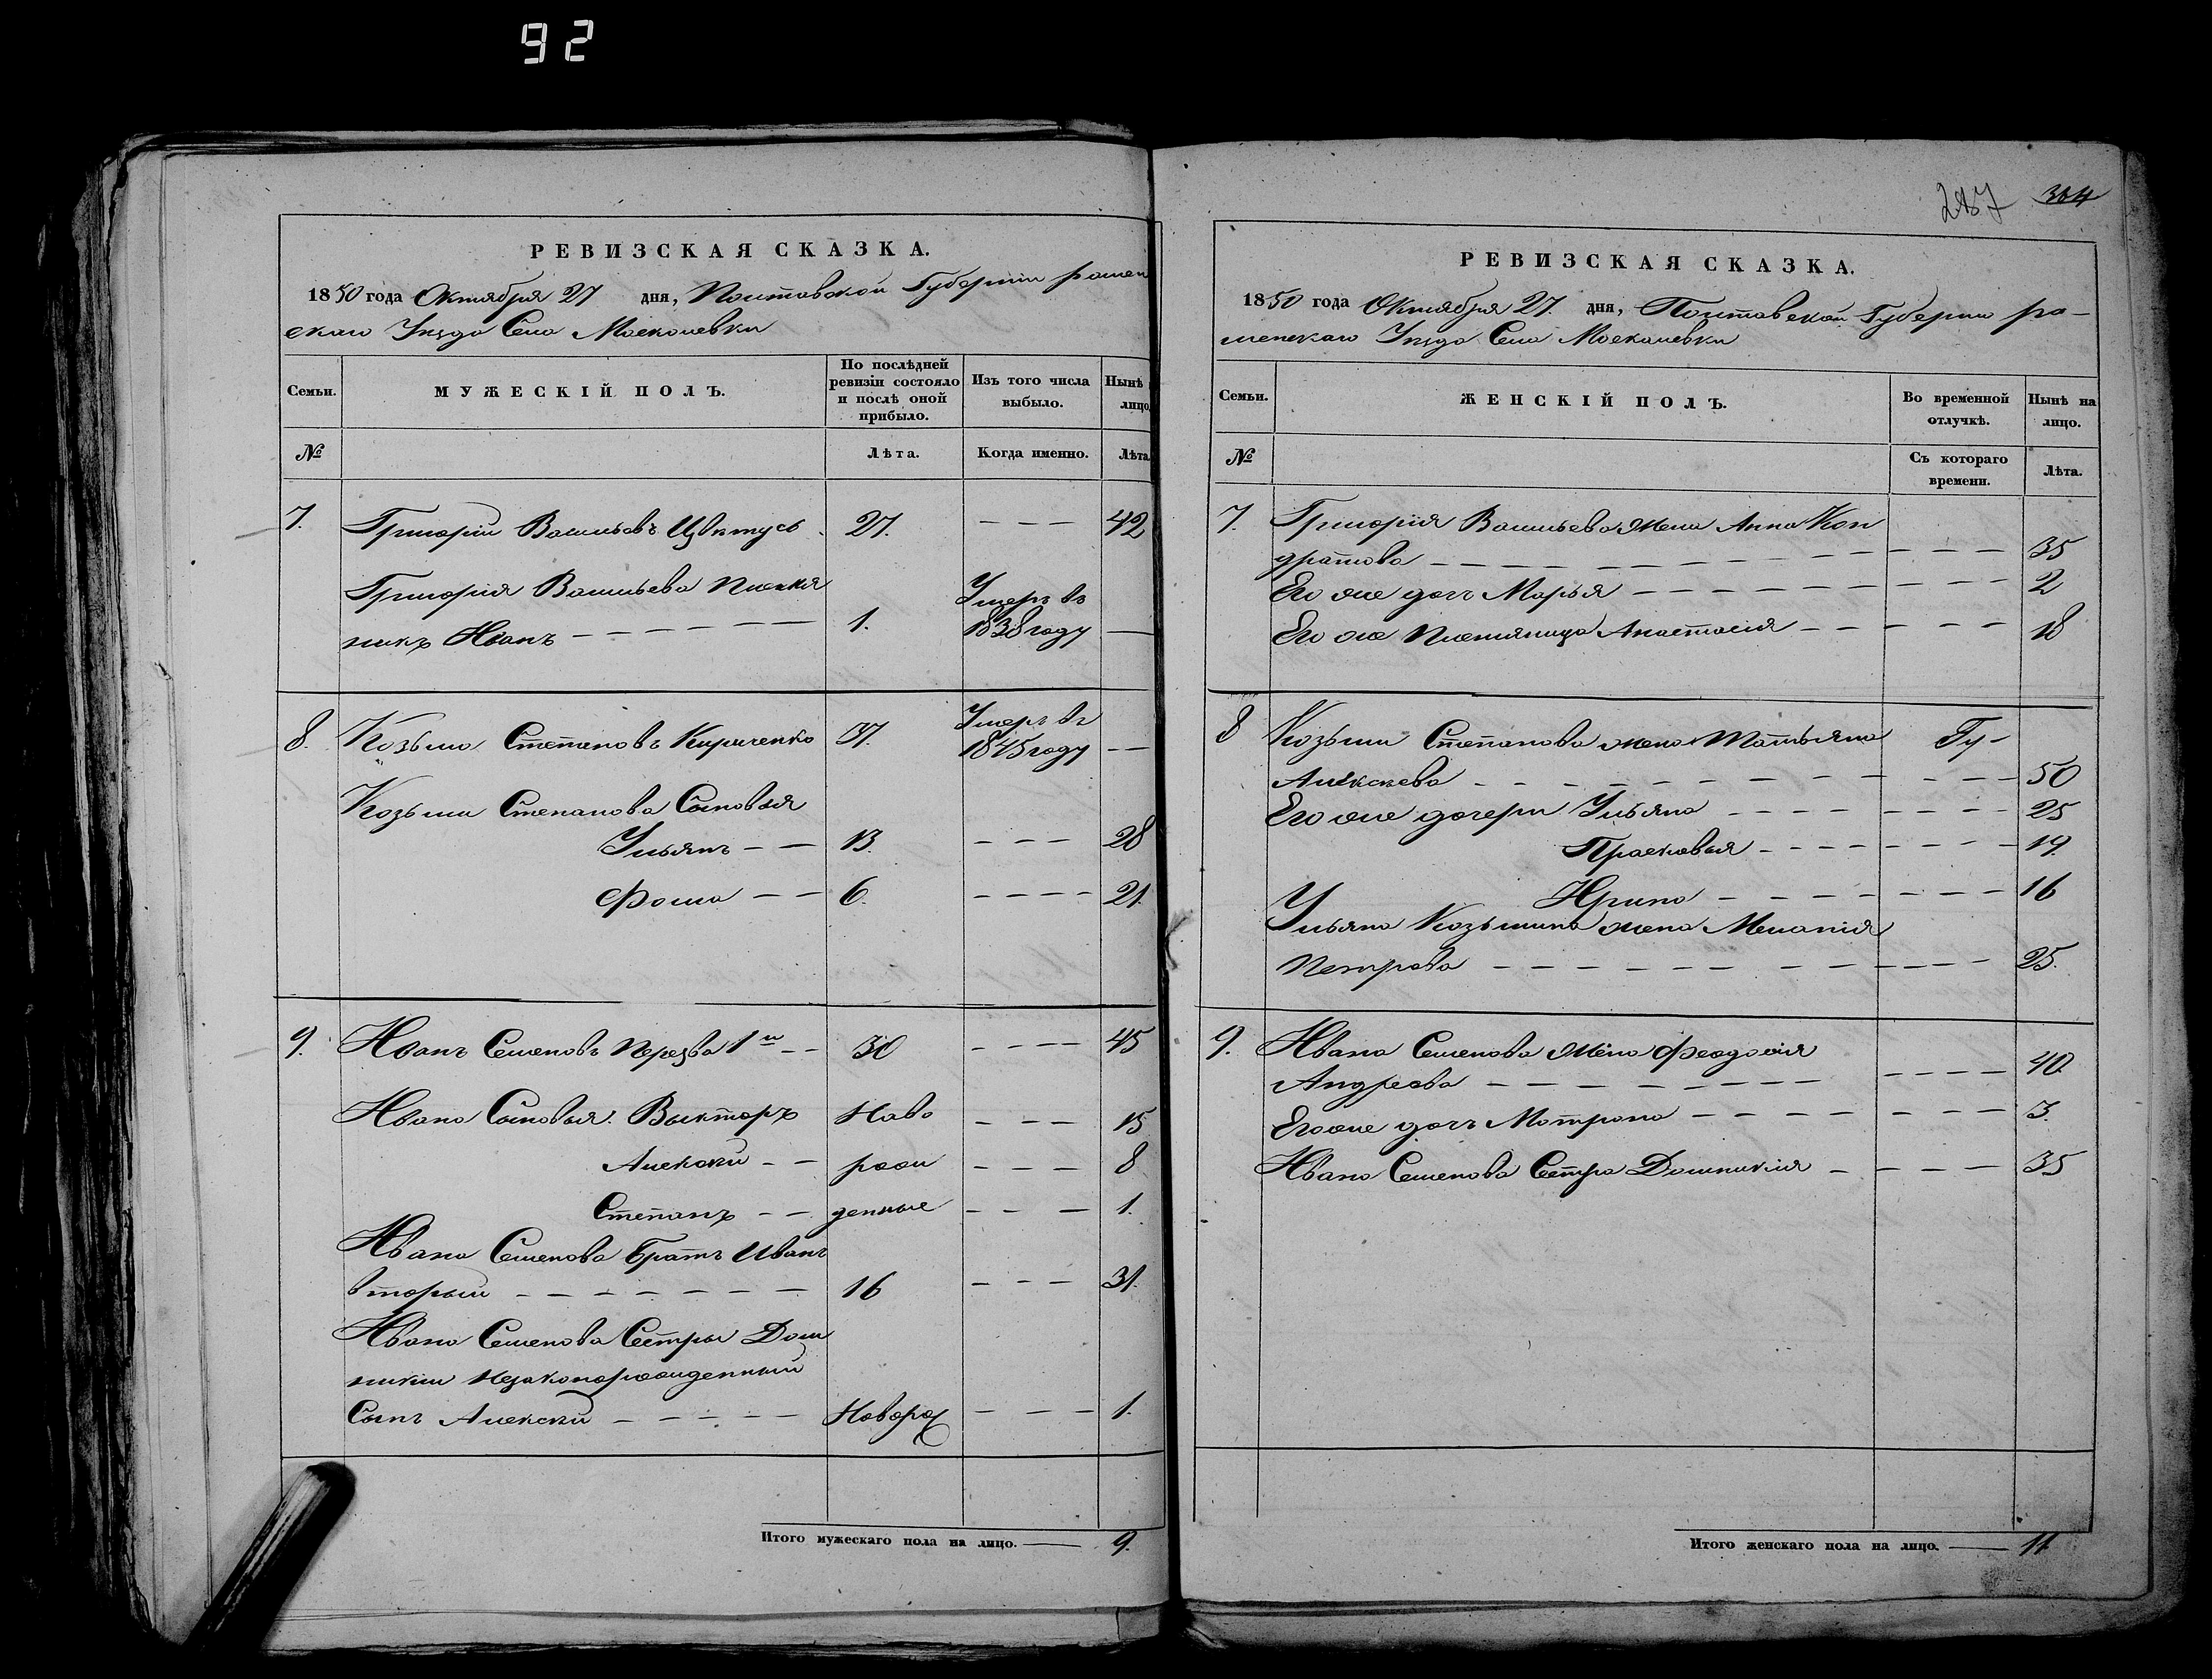 92
РЕВИЗСКАЯ СКАЗКА.
1850 года Октября 27 дня, Полтавской Губерніи ромен
скаго Уезда Села Москалевки
Семьи.
МУЖЕСКІЙ ПОЛЪ.
По послѣдней ревизіи состояло и послѣ оной прибыло.
Изъ того числа выбыло.
Нынѣ
лицо
№
Лѣта.
Когда именно.
Лѣта
7. Григорій Васильевъ Цвѣтусь 27. — — — 42
Григорія Васильева племян
никъ Иванъ — — — 1. Умеръ въ 1838 году —
8. Козьма Степановъ Кириченко 37. Умеръ въ 1845 году —
Козьми Степанова Сыновья
Ульянъ — — 13. — — — 28
Фома — — 6. — — — — 21.
9. Иванъ Семеновъ Перезва 1й — — 30 — — — — 45
Ивана Сыновья. Викторъ Ново — — — 15
Алексѣй — — рож — — — 8
Степанъ — — денные — — — 1.
Ивана Семенова Братъ Иванъ
вторый — — — — — — — 16 — — — 31.
Ивана Семенова Сестры Дом
никіи незаконорожденный
Сынъ Алексѣй — — — — — Новорож — — — 1.
Итого мужескаго пола на лицо. — 9.
304
РЕВИЗСКАЯ СКАЗКА.
1850 года Октября 27. дня, Полтавской Губерніи ро-
менскаго Уезда Села Москалевки
Семьи.
ЖЕНСКІЙ ПОЛЪ.
Во временной отлучкѣ.
Нынѣ на лицо.
№
Съ котораго времени.
Лѣта.
7. Григорія Васильева жена Анна Кон
дратова — — — — — — — 35
Его же дочь Марья — — — — — — 2
Его же Племяница Анастасія — — — — — 18
8 Козьми Степанова жена Татьяна Гу-
Алексѣева — — — — — — — — 50
Его же дочери Ульяна — — — — — — 25
Прасковья — — — — — — — 19.
Ирина — — — — — — — 16
Ульяна Козьмина жена Меланія
Петрова — — — — — — — — — 25.
9. Ивана Семенова жена Феодосія
Андреева — — — — — — — — 40.
Его же дочь Матрона — — — — — — — 3.
Ивана Семенова Сестра Домникія — — — — 35
Итого женскаго пола на лицо. — 11.